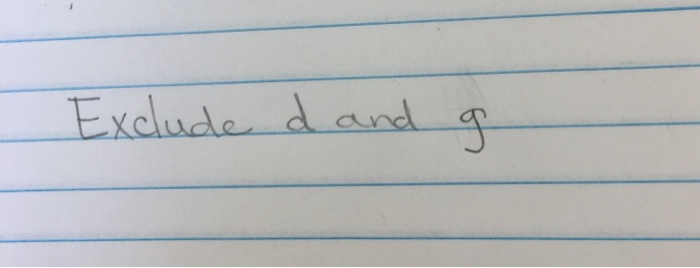 Exclude d and g